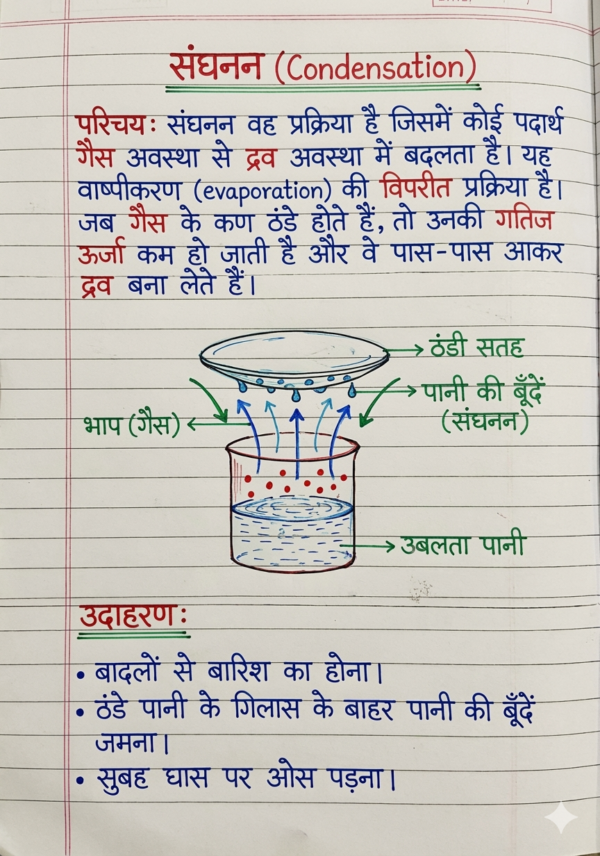 संघनन (Condensation)
परिचय: संघनन वह प्रक्रिया है जिसमें कोई पदार्थ
गैस अवस्था से द्रव अवस्था में बदलता है। यह
वाष्पीकरण (evaporation) की विपरीत प्रक्रिया है।
जब गैस के कण ठंडे होते हैं, तो उनकी गतिज
ऊर्जा कम हो जाती है और वे पास-पास आकर
द्रव बना लेते हैं।
ठंडी सतह
पानी की बूँदें
(संघनन)
भाप (गैस)
उबलता पानी
उदाहरण:
• बादलों से बारिश का होना।
• ठंडे पानी के गिलास के बाहर पानी की बूँदें
जमना।
• सुबह घास पर ओस पड़ना।